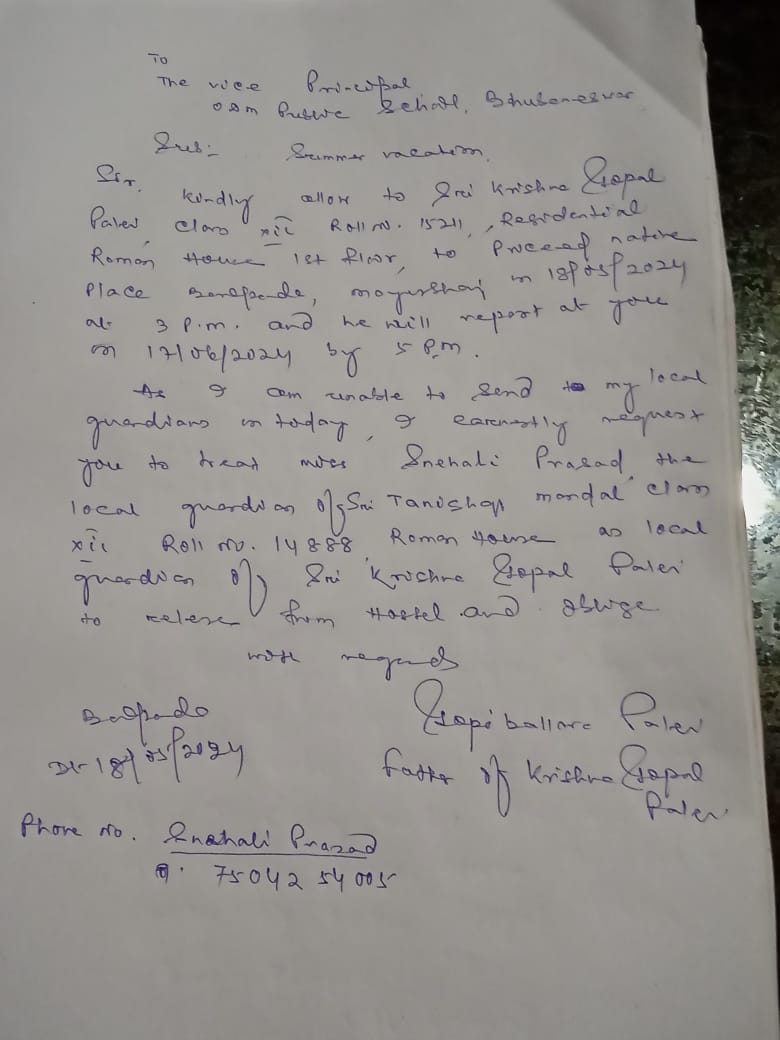 To
The vice Principal
ODM Public School, Bhubaneswar
Sub:- Summer vacation.
Sir,
kindly allow to Sri Krishna Gopal
Palei, class xii Roll No. 15211, Residential
Roman House 1st floor, to proceed native
place Baripada, mayurbhanj on 18/05/2024
at 3 P.m. and he will report at you
on 17/06/2024 by 5 P.m.
As I am unable to send my local
guardians on today, I earnestly request
you to treat miss Snehali Prasad, the
local guardian of Sri Tanishq mandal class
xii Roll No. 14888, Roman House as local
guardian of Sri Krishna Gopal Palei
to release from Hostel and oblige.
with regards
Baripada
Dt-18/05/2024
Gopiballava Palei
father of Krishna Gopal
Palei
Phone No. Snehali Prasad
75042 54005